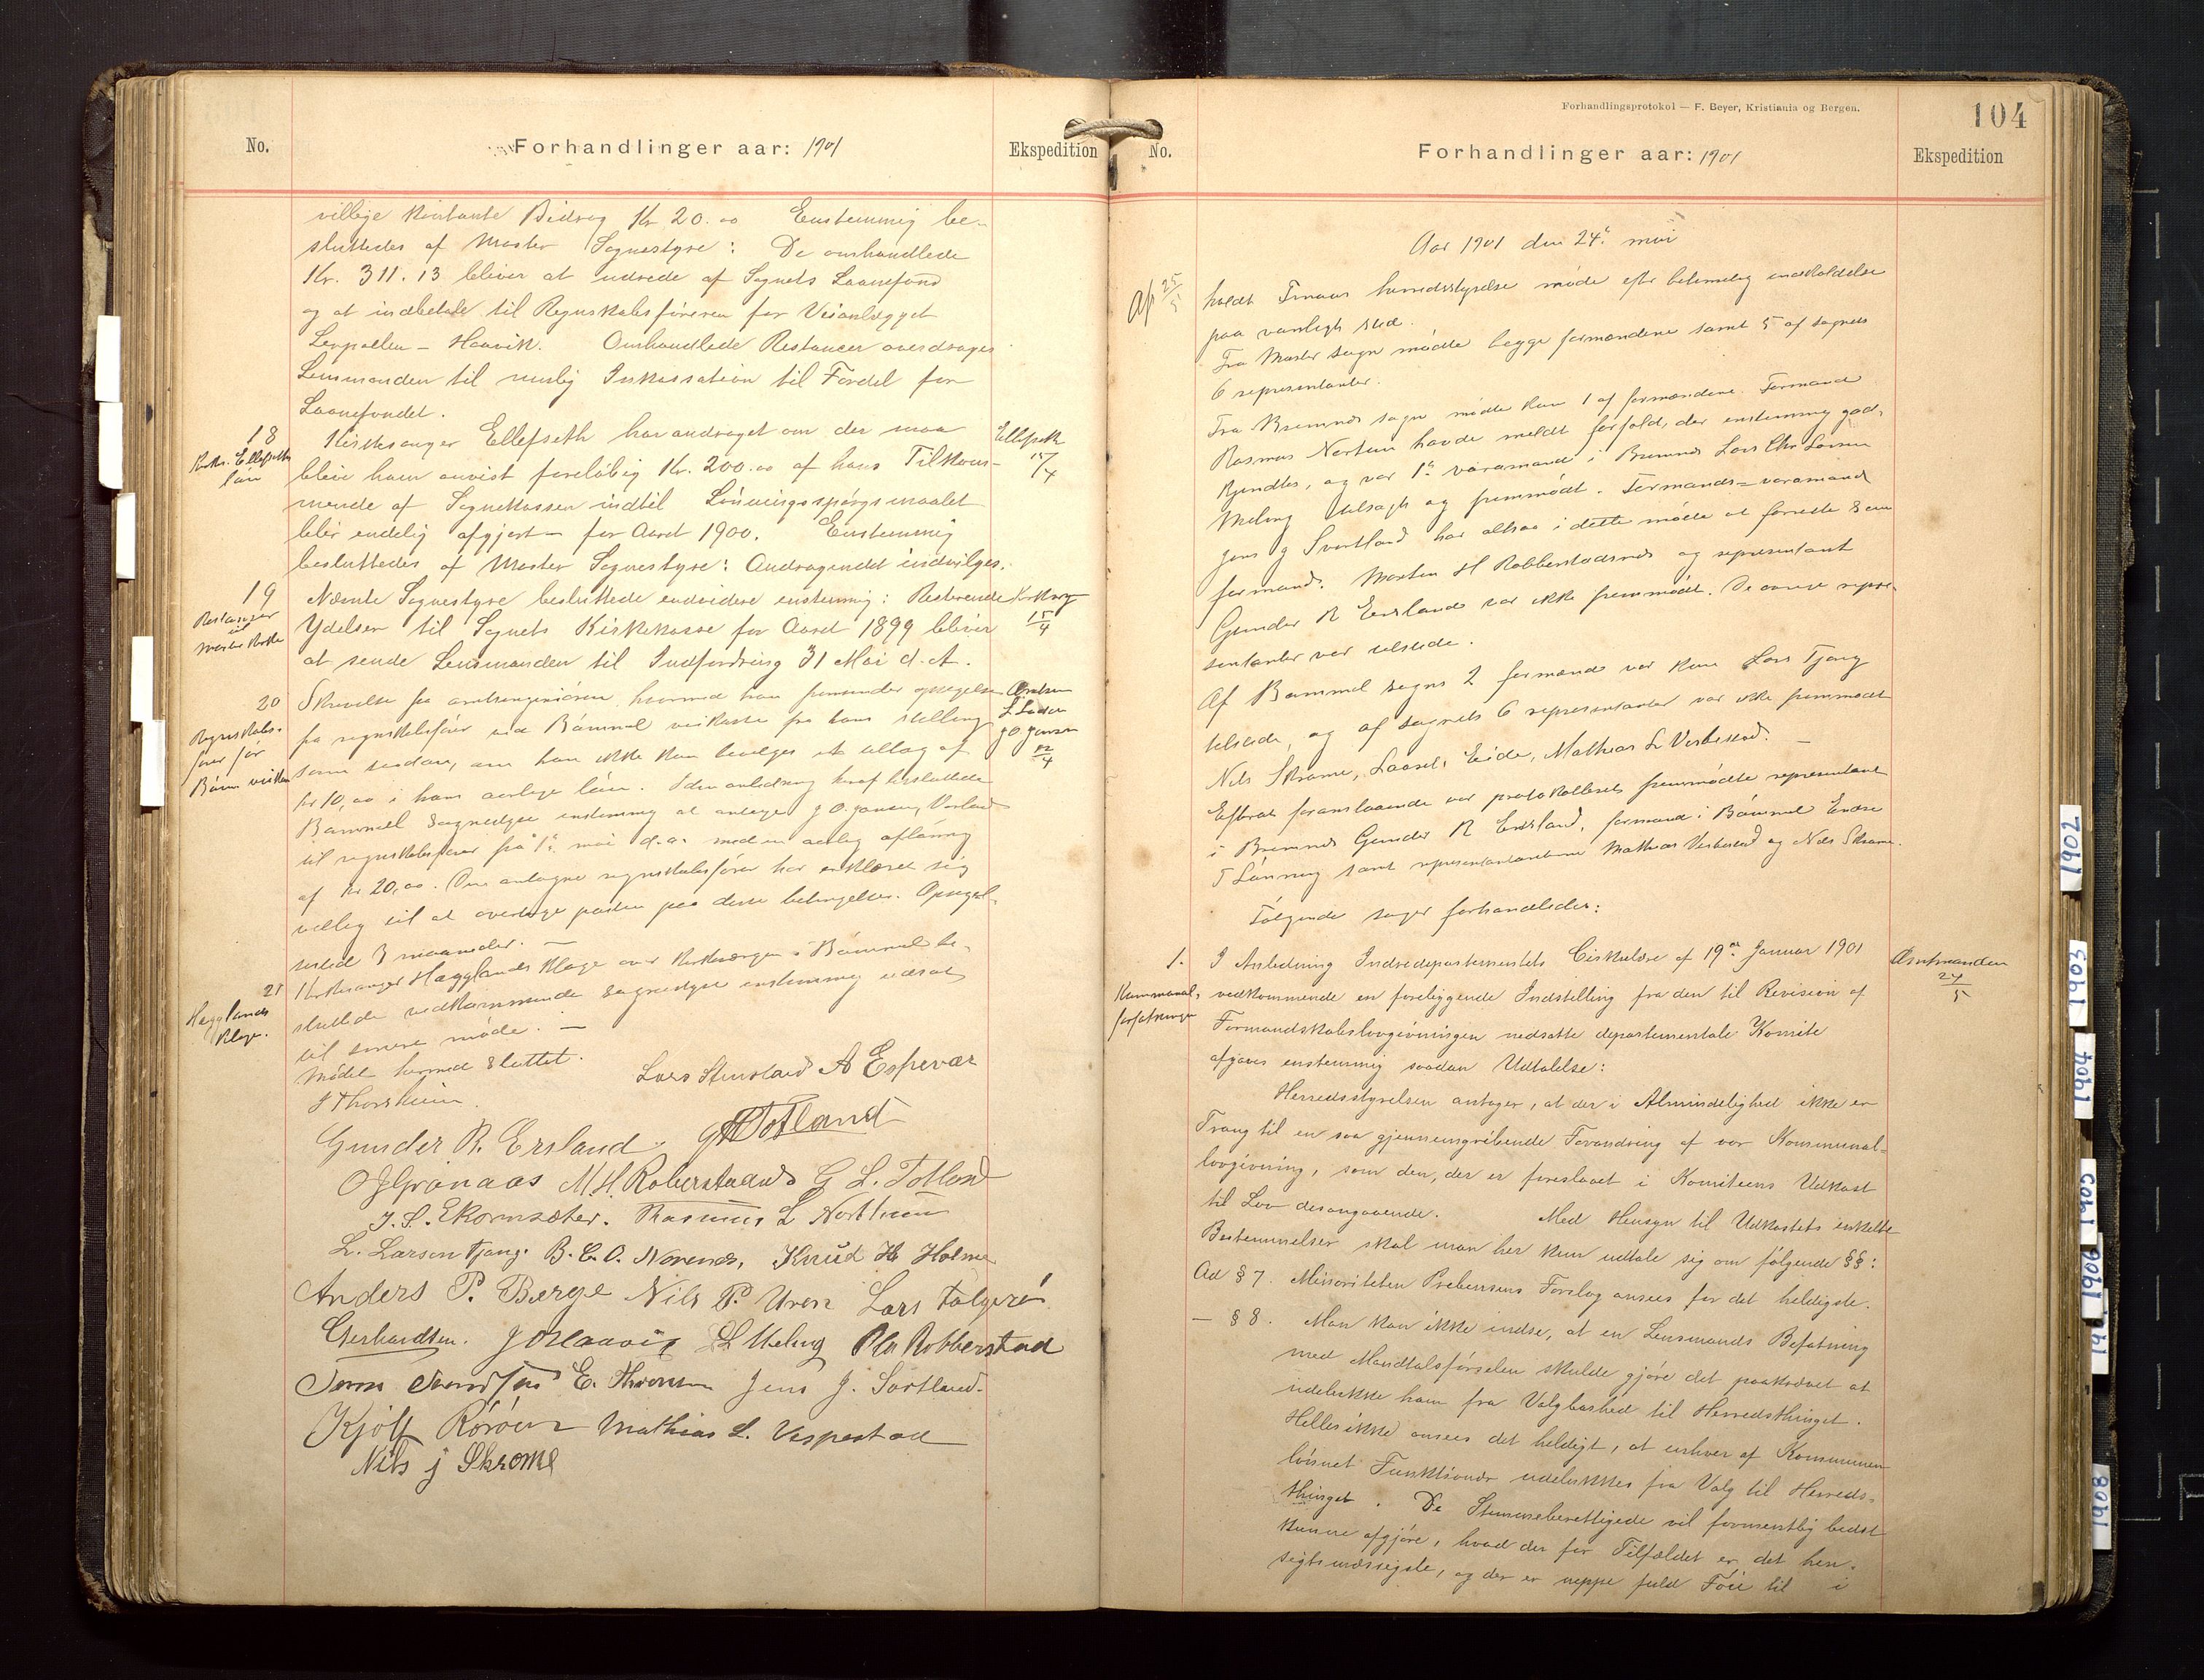 No.
Forhandlinger aar: 1901
Ekspedition
villige kontante Bidrag Kr 20.00 Enstemmig be-
sluttedes af Moster Sognestyre: De omhandlede
Kr. 311.13 bliver at udrede af Sognets Laanefond
og at indbetale til Regnskabsføreren for Veianlægget
Haavik. Omhandlede Restancer overdrages
Lensmanden til rimelig Inkassation til Fordel for
Laanefondet.
18
Kirkesanger Ellefseth har andraget om der maa
Kirkes. Ellefseths
løn
Ellefseth
17/4
blive ham anvist foreløbig Kr. 200.00 af hans Tilkom-
mende af Sognekassen indtil Lønningsspørgsmaalet
blir endelig afgjort for Aaret 1900. Enstemmig
besluttedes af Moster Sognestyre: Andragendet indvilges.
19
Restancer
til
Moster Kirke
Nævnte Sognestyre besluttede endvidere enstemmig: Resterende
Kirkeverg
15/4
Ydelser til Sognets Kirkekasse for Aaret 1899 bliver
at sende Lensmanden til Indfordring 31 Mai d. A.
20
Regnskabs-
fører for
Bømm veikasse
Skrivelse fra amtsingeniøren hvormed han fremsender opsigelse
fra regnskabsfører ved Bømmel veikasse fra hans stilling
som saadan, om han ikke kan bevilges et tillæg af
kr 10,00 i hans aarlige løn. I den anledning besluttede
Bømmel sognestyre enstemmig at antage J O Jensen,
til regnskabsfører fra 1ste mai d.a. med en aarlig aflønning
af kr 20,00. Den antagne regnskabsfører har erklæret sig
villig til at overtage posten paa disse betingelser. Opsigel-
sestid 3 maaneder. —
21
Hægglands
klage.
Kirkesanger Hægglands klage over kirkevergen i Bømmel be-
sluttede vedkommende sognestyre enstemmig udsat
til senere møde. —
Mødet hermed sluttet.
Lars Stensland A Espevær
J Thorsheim.
Gunder R. Ersland. Totland
O J Grönaas M H. Roberstadnes G L. Totland
J. S. Ekornsæter. Rasmus L Nortun
L. Larsen Tjang. B. C. O. Nornes, Knud H Holme
Anders P. Berge Nils P. Uren Lars
Gerhardsen. J O Haavik L Meling Ola Robberstad
E. Thorsen Jens J. Sortland.
Kjöll Röröen Mathias L. Vespestad
Nils J Skrome
Forhandlingsprotokol — F. Beyer, Kristiania og Bergen.
104
No.
Forhandlinger aar: 1901
Ekspedition
Aar 1901 den 24de mai
Afs 25/5
holdt Finnaas herredsstyrelse møde efter betimelig indkaldelse
paa vanligt sted.
Fra Moster sogn mødte begge formændene samt 5 af sognets
6 repræsentanter.
Fra Bremnes sogn mødte kun 1 af formændene. Formand
Rasmus Nortun havde meldt forfald, der enstemmig god-
kjendtes, og var 1ste varamand i Bremnes Lars Chr Larsen
Meling tilsagt og fremmødt. Formands-varamand
Jens J Svortland har altsaa i dette møde at forrette som
formand. Morten H Robberstadnes og repræsentant
Gunder R Ersland var ikke fremmødt. De øvrige repræ-
sentanter var tilstede.
Af Bømmel sogns 2 formænd var kun Lars Tjang
tilstede, og af sognets 6 repræsentanter var ikke fremmødt
Nils Skrome, Eide, Mathias L Vestbostad. —
Efterat foranstaaende var protokolleret fremmødte repræsentant
i Bremnes Gunder R Ersland, formand i Bømmel Endre
T Lønning samt repræsentanterne Mathias Vesbostad og Nils Skrome.
Følgende sager forhandledes:
1.
Kommunal-
forfatningen
I Anledning Indredepartementets Cirkulære af 19de Januar 1901
Amtmanden
24/5
vedkommende en foreliggende Indstilling fra den til Revision af
Formandskabslovgivningen nedsatte departementale Komite
afgaves enstemmig saadan Udtalelse:
Herredsstyrelsen antager, at der i Almindelighed ikke er
Trang til en saa gjennemgribende Forandring af vor Kommunal-
lovgivning, som den, der er foreslaaet i Komiteens Udkast
til Lov desangaaende. Med Hensyn til Udkastets enkelte
Bestemmelser skal man her kun udtale sig om følgende §§:
Ad § 7. Minoriteten Prebensens Forslag ansees for det heldigste.
— § 8. Man kan ikke indse, at en Lensmands Befatning
med Mandtalsførselen skulde gjøre det paakrævet at
udelukke ham fra Valgbarhed til Herredsthinget.
Heller ikke ansees det heldigt, at enhver af Kommunen
lønnet Funktionær udelukkes fra Valg til Herreds-
thinget. De Stemmeberettigede vil formentlig bedst
kunne afgjøre, hvad der for Tilfældet er det hen-
sigtsmæssigste, og der er neppe fuld Føie til i
1902
1903
1904
1905
1906
1908